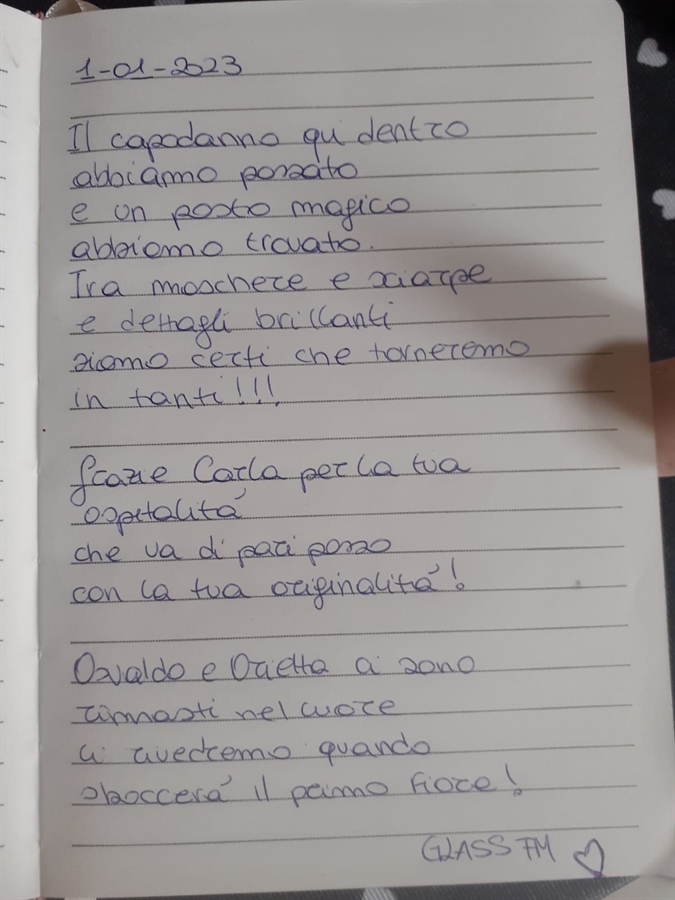 1-01-2023
Il capodanno qui dentro
abbiamo passato
e un posto magico
abbiamo trovato.
Tra maschere e sciarpe
e dettagli brillanti
siamo certi che torneremo
in tanti!!!
Grazie Carla per la tua
ospitalità
che va di pari passo
con la tua originalità!
Osvaldo e Orietta ci sono
rimasti nel cuore
ci rivedremo quando
sboccerà il primo fiore!
GLASS FM ♡